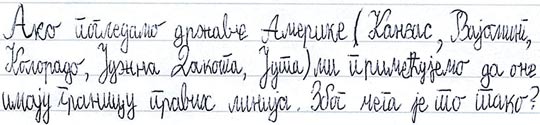 Ако погледамо државе Америке (Канзас, Вајоминг,
Колорадо, Јужна Дакота, Јута) ми примећујемо да оне
имају границу правих линија. Због чега је то тако?